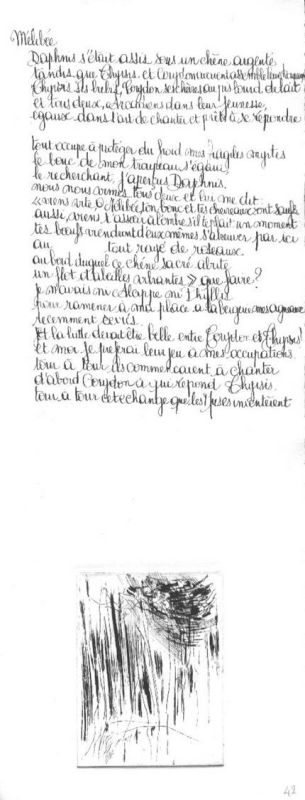 Mélibée
Daphnis s'était assis sous un chêne argenté
tandis que Thyrsis et Corydon
Thyrsis ses brebis, Corydon ses chèvres au pis lourd de lait
et tous deux, arcadiens dans leur jeunesse,
egaux dans l'art de chanter et prêts à se repondre
tout occupé à protéger du froid mes fragiles myrtes
le bouc de mon troupeau s'égara
le recherchant, j'aperçus Daphnis.
nous nous vîmes tous deux et lui me dit:
«viens vite ô Mélibée ton bouc et tes chevreaux sont saufs
aussi, viens t'asseoir à l'ombre s'il te plait un moment
tes bœufs viendront d'eux mêmes s'abreuver par ici
au tout rayé de roseaux
au bord duquel ce chêne sacré abrite
un flot d'abeilles vibrantes » que faire?
je n'avais ni Alcippe ni Phyllis
pour ramener à ma place à la bergerie mes agneaux
recemment sevrés.
Et la lutte devait être belle entre Corydon et Thyrsis!
et moi je préférai leur jeu à mes occupations.
tour à tour ils commencerent à chanter
d'abord Corydon à qui répond Thyrsis.
tour à tour cet échange que les Muses inventèrent
42